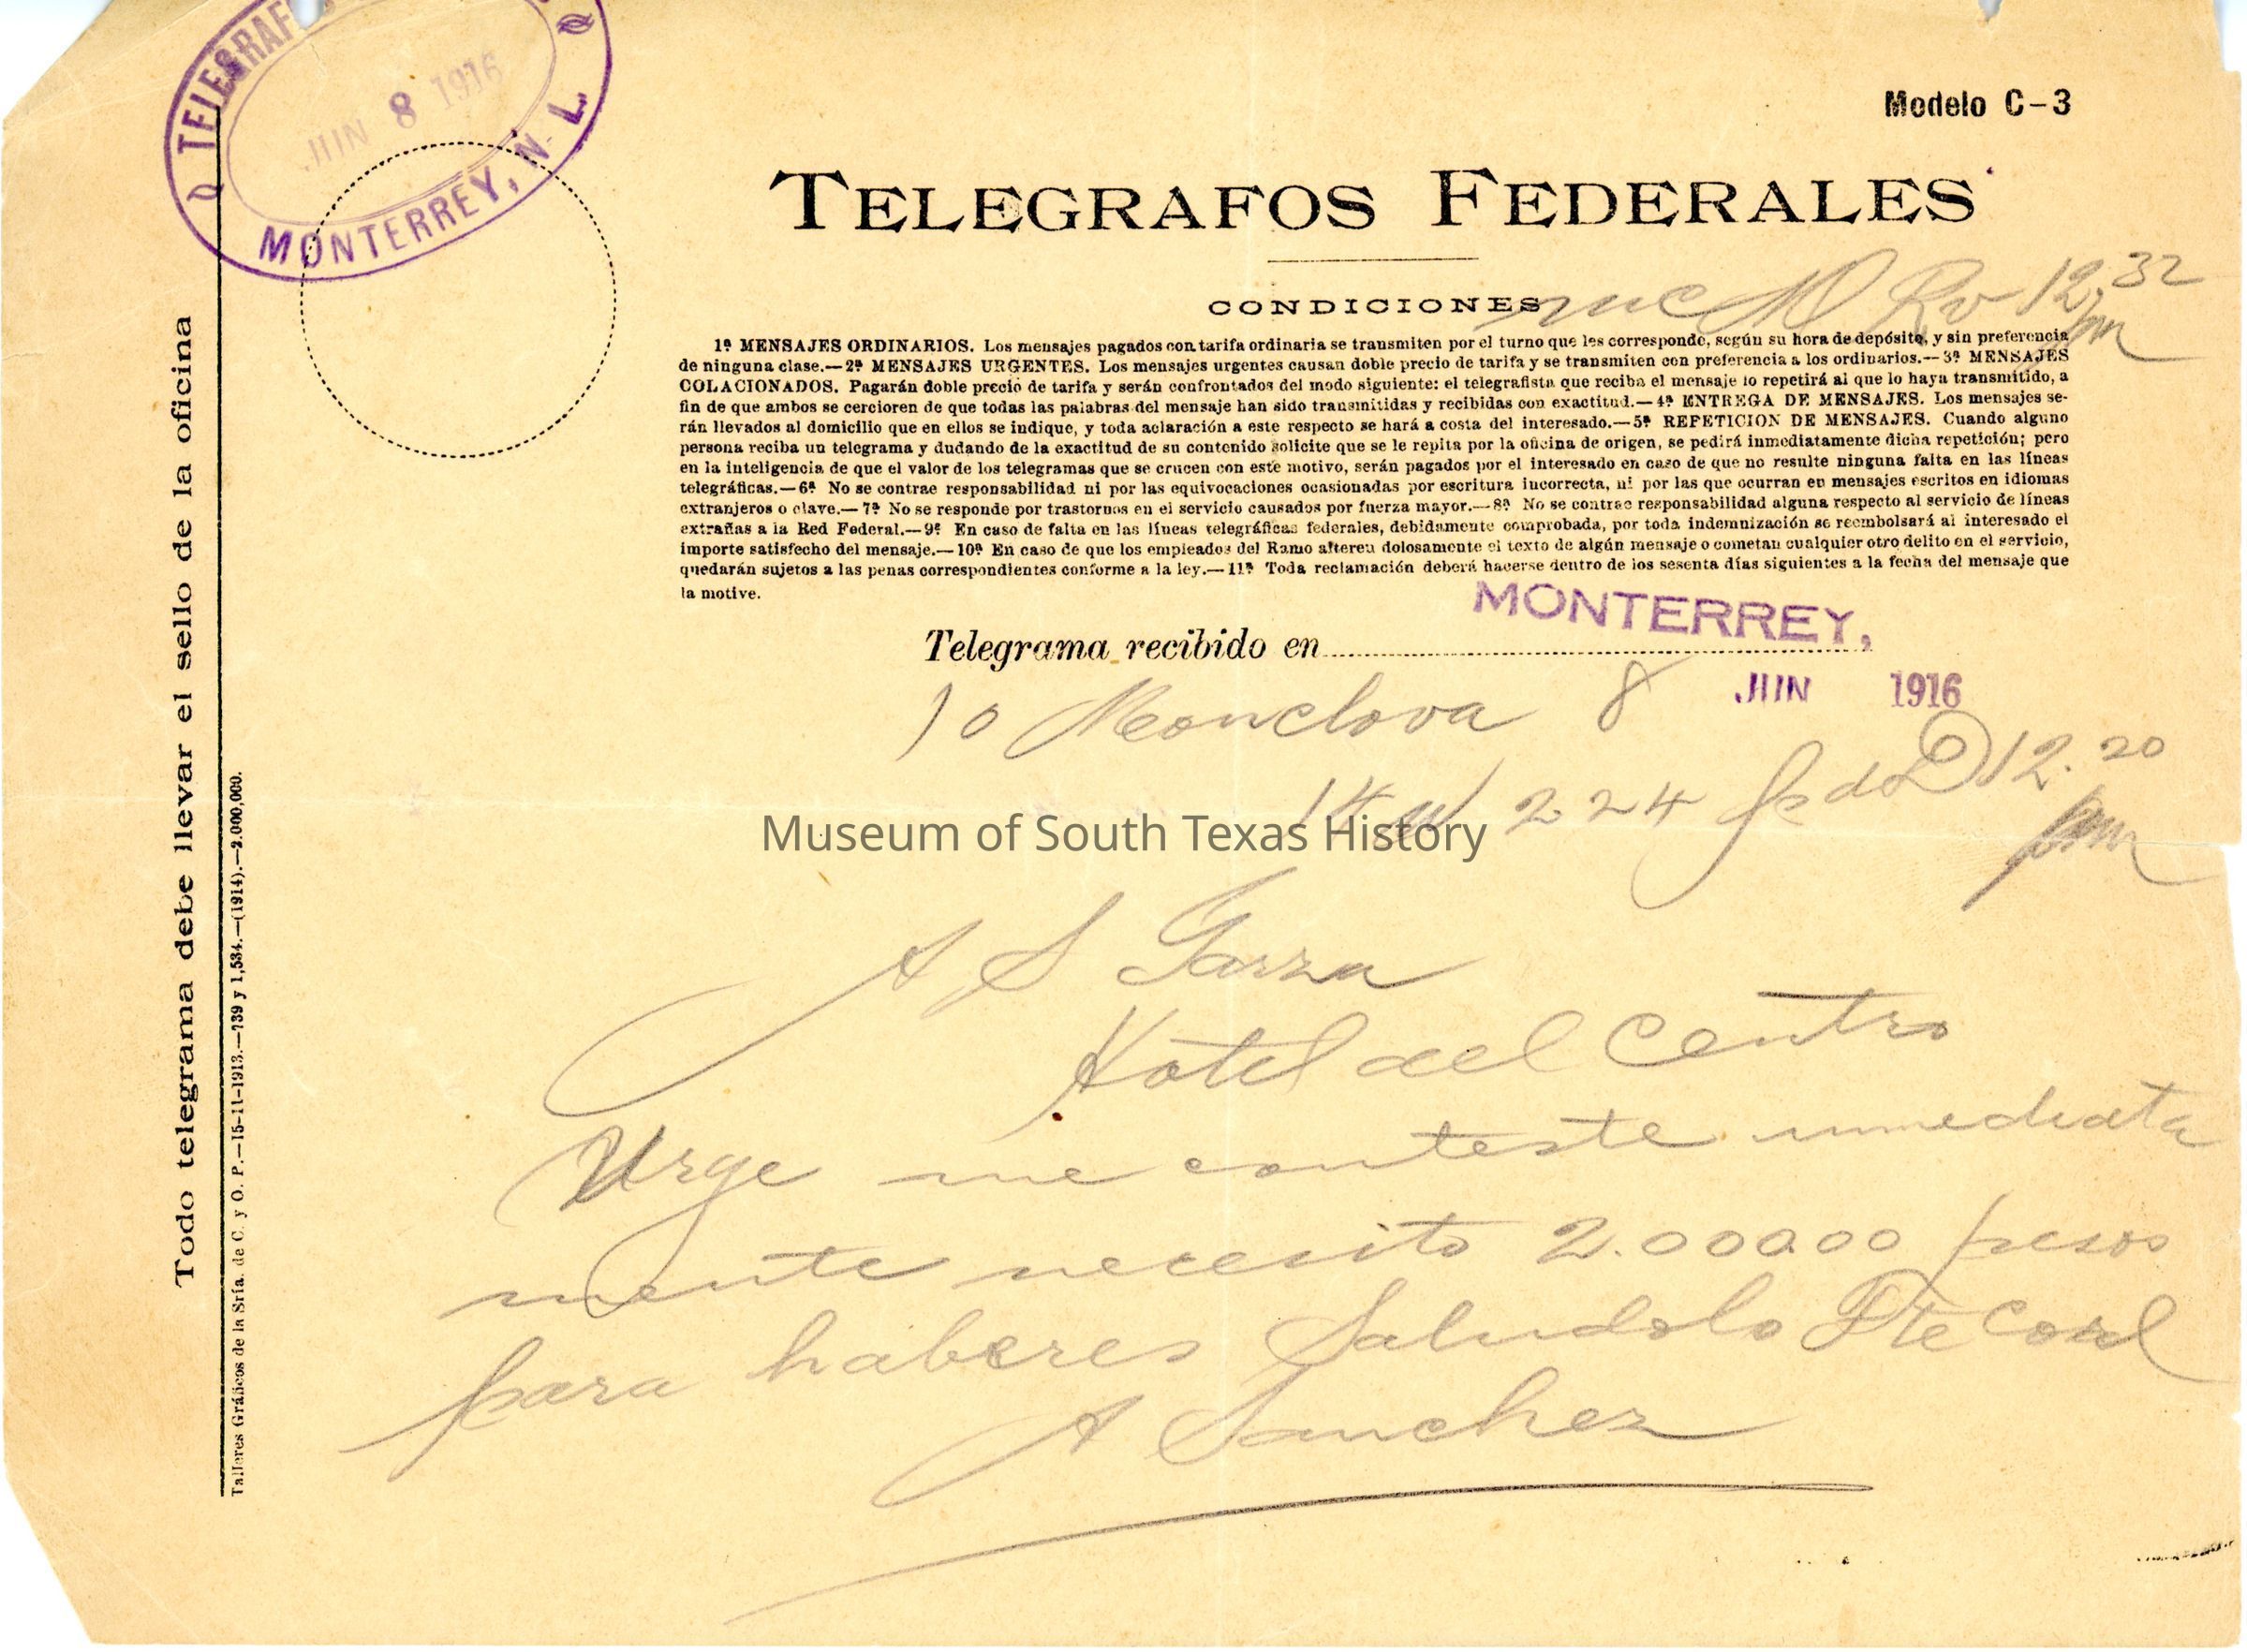 TELEGRAFOS
JUN 8 1916
MONTERREY, N. L.
Modelo C-3
TELEGRAFOS FEDERALES
Rv 12.32
pm
CONDICIONES
1ª MENSAJES ORDINARIOS. Los mensajes pagados con tarifa ordinaria se transmiten por el turno que les corresponde, según su hora de depósito, y sin preferencia
de ninguna clase.—2ª MENSAJES URGENTES. Los mensajes urgentes causan doble precio de tarifa y se transmiten con preferencia a los ordinarios.—3ª MENSAJES
COLACIONADOS. Pagarán doble precio de tarifa y serán confrontados del modo siguiente: el telegrafista que reciba el mensaje lo repetirá al que lo haya transmitido, a
fin de que ambos se cercioren de que todas las palabras del mensaje han sido transmitidas y recibidas con exactitud.—4ª ENTREGA DE MENSAJES. Los mensajes se-
rán llevados al domicilio que en ellos se indique, y toda aclaración a este respecto se hará a costa del interesado.—5ª REPETICION DE MENSAJES. Cuando alguno
persona reciba un telegrama y dudando de la exactitud de su contenido solicite que se le repita por la oficina de origen, se pedirá inmediatamente dicha repetición; pero
en la inteligencia de que el valor de los telegramas que se crucen con este motivo, serán pagados por el interesado en caso de que no resulte ninguna falta en las líneas
telegráficas.—6ª No se contrae responsabilidad ni por las equivocaciones ocasionadas por escritura incorrecta, ni por las que ocurran en mensajes escritos en idiomas
extranjeros o clave.—7ª No se responde por trastornos en el servicio causados por fuerza mayor.—8ª No se contrae responsabilidad alguna respecto al servicio de líneas
extrañas a la Red Federal.—9ª En caso de falta en las líneas telegráficas federales, debidamente comprobada, por toda indemnización se reembolsará al interesado el
importe satisfecho del mensaje.—10ª En caso de que los empleados del Ramo alteren dolosamente el texto de algún mensaje o cometan cualquier otro delito en el servicio,
quedarán sujetos a las penas correspondientes conforme a la ley.—11ª Toda reclamación deberá hacerse dentro de los sesenta días siguientes a la fecha del mensaje que
la motive.
Telegrama recibido en MONTERREY,
10 Monclova 8 JUN 1916
14 W 224 D 12.20
pm
Museum of South Texas History
A S Garza
Hotel del Centro
Urge me conteste inmediata
mente necesito 2.00000 pesos
para haberes Saludolo Tte Corl
A Sanchez
Todo telegrama debe llevar el sello de la oficina
Talleres Gráficos de la Sría. de C. y O. P.—15-11-1913.—739 y 1,534.—(1914).—2.000,000.